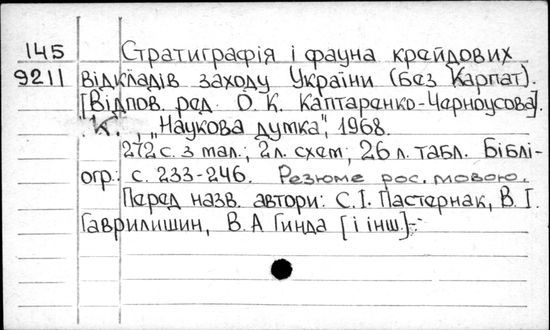 145 Стратиграфія і фауна крейдових
9211 відкладів заходу України (без Карпат).
[Відпов. ред. О. К. Каптаренко-Черноусова].
К., „Наукова думка", 1968.
272 с. з мал.; 2 л. схем; 26 л. табл. Біблі-
огр.: с. 233-246. Резюме рос. мовою.
Перед назв. автори: С. І. Пастернак, В. І.
Гаврилишин, В. А Гинда [і інш.].